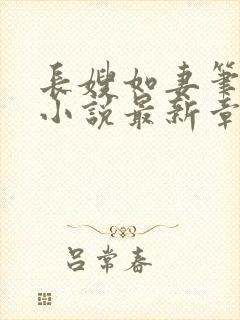 長嫂如妻筆
小說最新章
吕常春